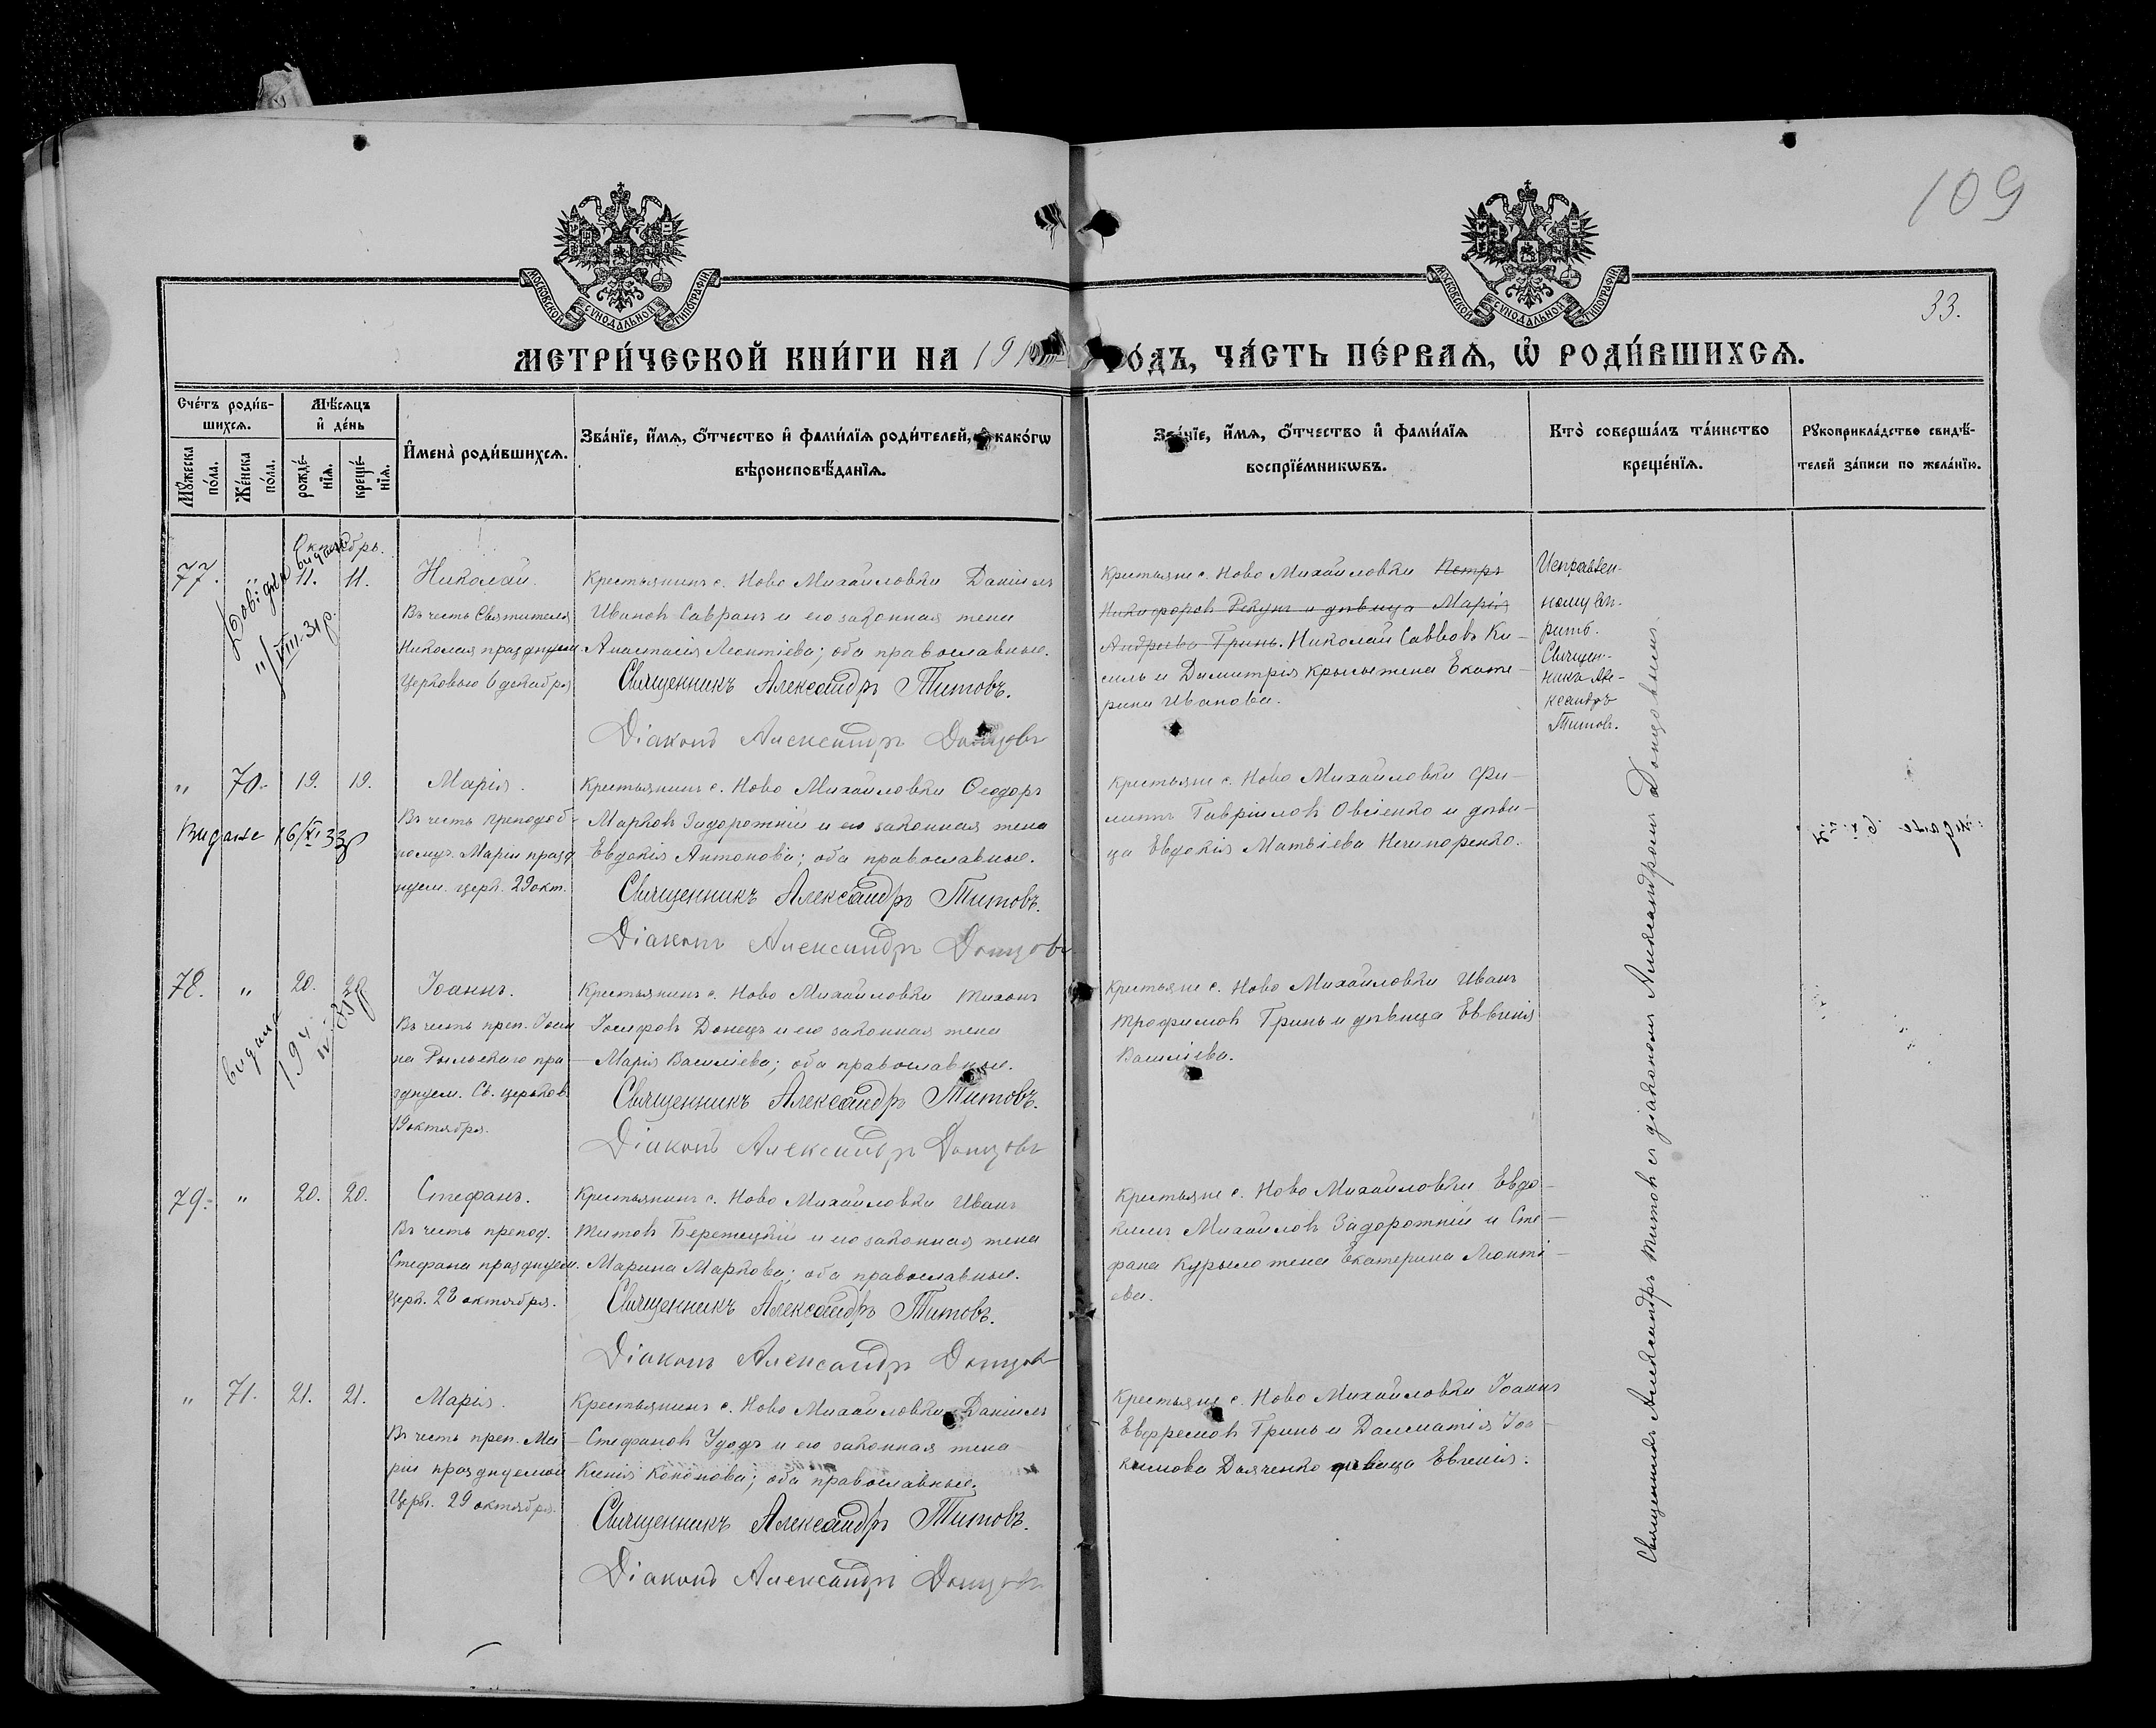 109
33.
МОСКОВСКОЙ СѴНОДАЛЬНОЙ ТИПОГРАФІИ
МОСКОВСКОЙ СѴНОДАЛЬНОЙ ТИПОГРАФІИ
МЕТРИ́ЧЕСКОЙ КНИ́ГИ НА 191
О́ДЪ, ЧА́СТЬ ПЕ́РВАѦ, Ѡ҆ РОДИ́ВШИХСѦ.
Сче́тъ роди́в-
шихсѧ.
Мꙋ́жеска по́ла.
Же́нска по́ла.
Мѣ́сѧцъ
и҆ де́нь
рожде́-
нїѧ.
креще́-
нїѧ.
И҆мена̀ роди́вшихсѧ.
Зва́нїе, и҆́мѧ, ѻ҆́тчество и҆ фами́лїѧ роди́телей, и҆ како́гѡ
вѣроисповѣ́данїѧ.
Зва́нїе, и҆́мѧ, ѻ҆́тчество и҆ фами́лїѧ
воспрїе́мникѡвъ.
Кто̀ соверша́лъ та́инство
креще́нїѧ.
Рꙋкоприкла́дство свидѣ́-
телей за́писи по жела́нїю.
Октябрь.
77. " 11. 11.
Николай.
Въ честь Святителя
Николая празднуем
Церковью 6 декабря
Крестьянинъ с. Ново Михайловки Даніилъ
Ивановъ Савранъ и его законная жена
Анастасія Леонтіева; оба православные.
Священникъ Александръ Титовъ.
Діаконъ Александръ Донцовъ
Крестьяне с. Ново Михайловки Петръ
Никифоровъ Рекунъ и дѣвица Марія
Андреева Гринь. Николай Савовъ Ки-
силь и Димитрія Крылы жена Екате-
рина Иванова.
Исправлен-
ному вѣ-
рить.
Священ-
никъ Але-
ксандръ
Титовъ.
" 70. 19. 19.
Видане 16/XI 33р
Марія.
Въ честь преподоб-
номуч. Маріи празд
нуем. церк. 29 окт.
Крестьянинъ с. Ново Михайловки Ѳеодоръ
Марковъ Задорожній и его законная жена
Евдокія Антонова; оба православные.
Священникъ Александръ Титовъ.
Діаконъ Александръ Донцовъ
Крестьяне с. Ново Михайловки Фи-
липпъ Гавріиловъ Овсіенко и дѣви-
ца Евдокія Матвіева Нечипоренко.
78. " 20. 20.
видана
Іоаннъ.
Въ честь преп. Іоан
на Рыльскаго пра-
зднуем. Св. церков.
19 октября.
Крестьянинъ с. Ново Михайловки Тихонъ
Іосифовъ Донецъ и его законная жена
Марія Василіева; оба православные.
Священникъ Александръ Титовъ.
Діаконъ Александръ Донцовъ
Крестьяне с. Ново Михайловки Иванъ
Трофимовъ Гринь и дѣвица Евгенія
Василіева.
79. " 20. 20.
Стефанъ.
Въ честь препод.
Стефана празднуем.
Церк. 28 октября.
Крестьянинъ с. Ново Михайловки Иванъ
Титовъ Бережецкій и его законная жена
Марина Маркова; оба православные.
Священникъ Александръ Титовъ.
Діаконъ Александръ Донцовъ
Крестьяне с. Ново Михайловки Евдо-
кимъ Михайловъ Задорожній и Сте-
фана Курыло жена Екатерина Леонті-
ева.
" 71. 21. 21.
Марія.
Въ честь преп. Ма-
ріи празднуемой
Церк. 29 октября.
Крестьянинъ с. Ново Михайловки Даніилъ
Стефановъ Удодъ и его законная жена
Ксенія Кононова; оба православные.
Священникъ Александръ Титовъ.
Діаконъ Александръ Донцовъ
Крестьяне с. Ново Михайловки Іоаннъ
Ефремовъ Гринь и Далматія Іоа-
кимова Дьяченко дѣвица Евгенія.
Священникъ Александръ Титовъ съ діакономъ Александромъ Донцовымъ.